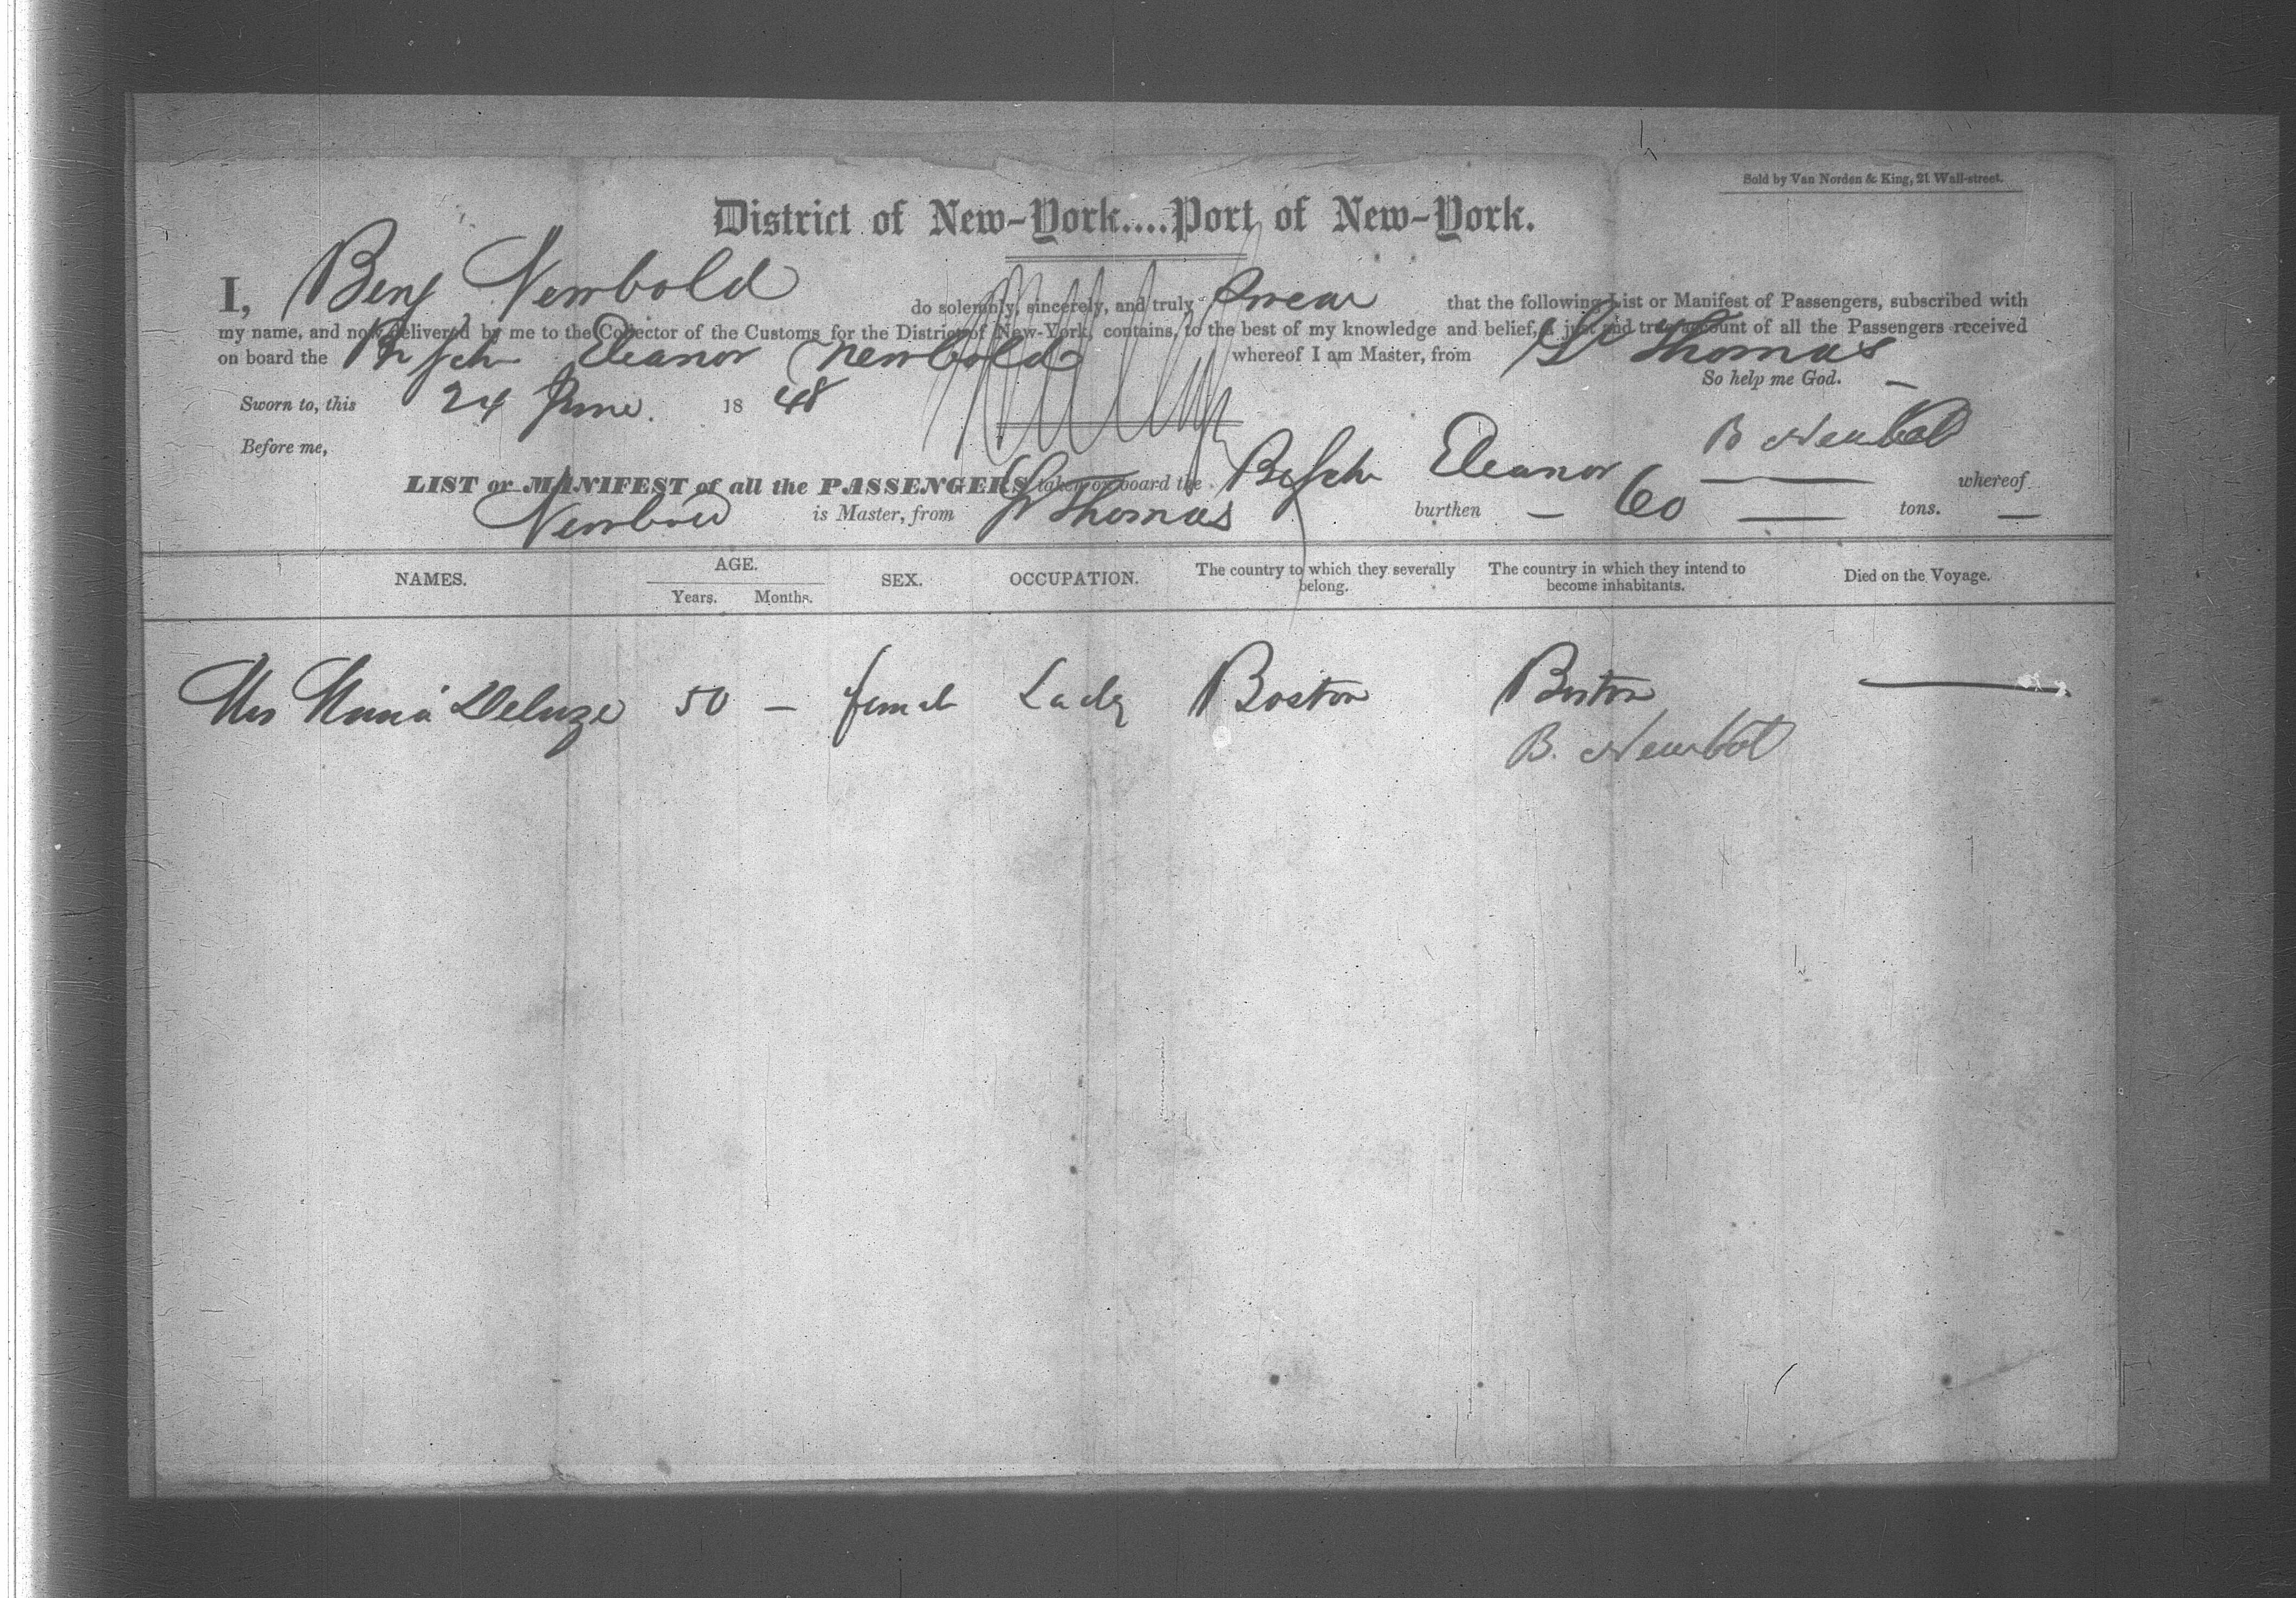 Sold by Van Norden & King, 21 Wall-street.
District of New-York....Port of New-York.
I, Benj Newbold do solemnly, sincerely, and truly Swear that the following List or Manifest of Passengers, subscribed with
my name, and now delivered by me to the Collector of the Customs for the District of New-York, contains, to the best of my knowledge and belief, a just and true account of all the Passengers received
on board the Br Sch Eleanor Newbold whereof I am Master, from St Thomas
So help me God.
Sworn to, this 24 June. 1848
B Newbold
Before me,
LIST or MANIFEST of all the PASSENGERS taken on board the Br Sch Eleanor whereof
Newbold is Master, from St Thomas burthen — 60 — tons. —
NAMES. AGE. SEX. OCCUPATION. The country to which they severally belong. The country in which they intend to become inhabitants. Died on the Voyage.
Years. Months.
Mrs Deluze 50 — female Lady Boston Boston —
B. Newbol